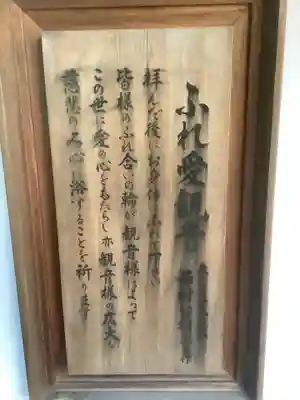 ふれ愛観音
拝んだ後にお身体にふれて下さい
皆様のふれ合いの輪が観音様によって
この世に愛の心をもたらし亦観音様の広大な
慈悲の心に浴することを祈ります